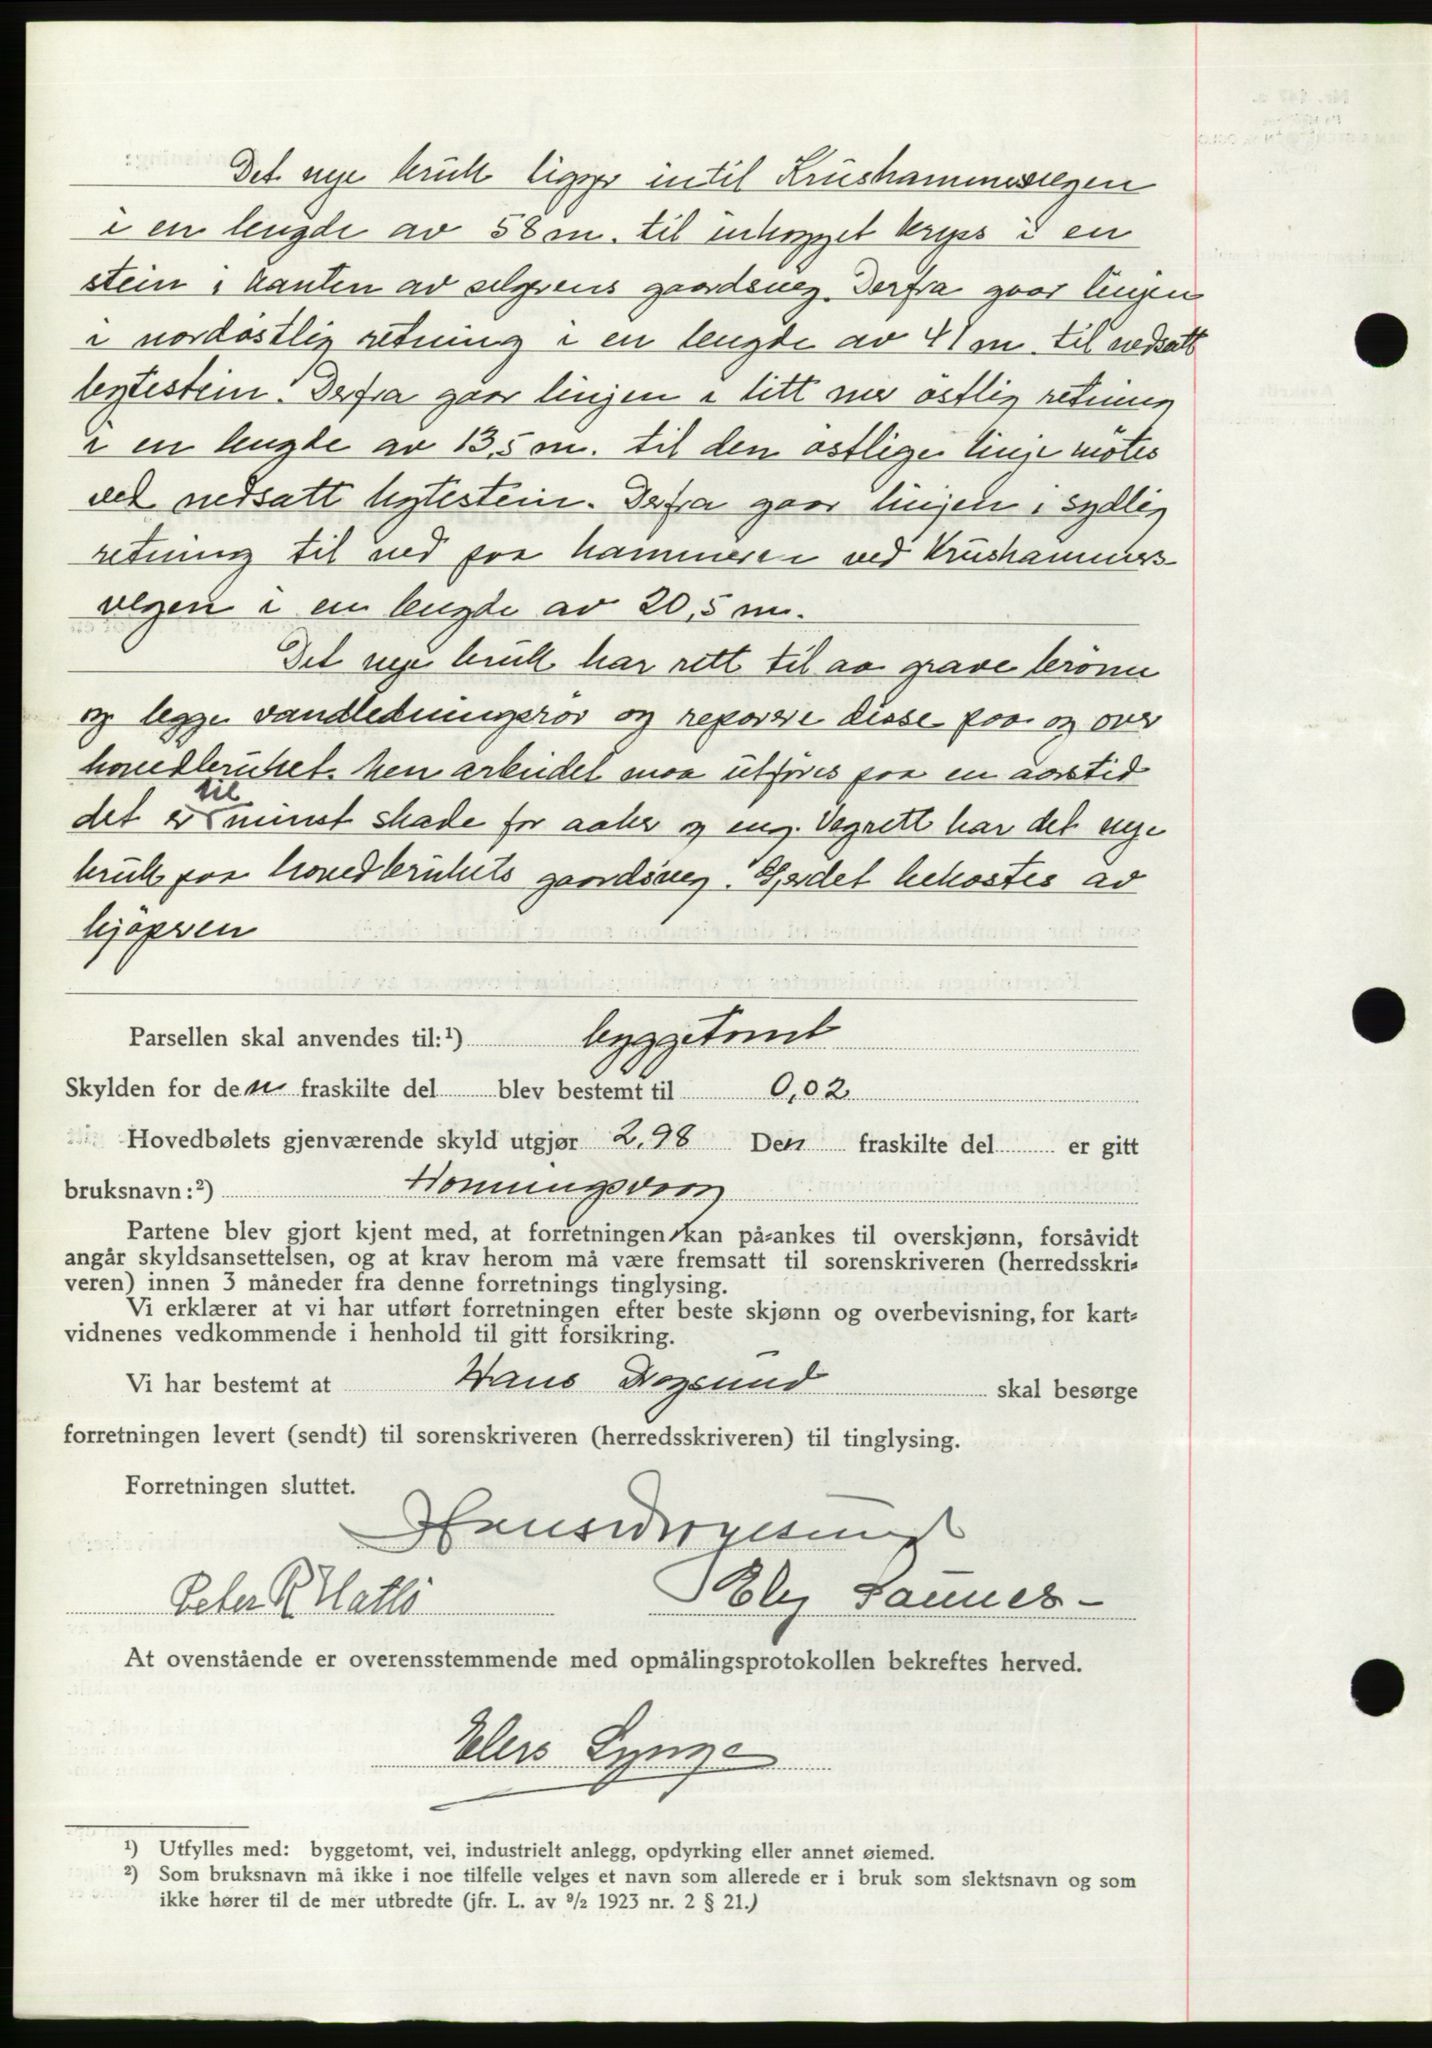 Det nye bruk ligger intil Krushammersvegen
i en lengde av 58 m. til inhogget kryss i en
stein i kanten av selgerens gaardsveg. Derfra gaar linjen
i nordöstlig retning i en lengde av 41 m. til nedsatt
bytestein. Derfra gaar linjen i litt mer östlig retning
i en lengde av 13,5 m. til den östlige linje mötes
ved nedsatt bytestein. Derfra gaar linjen i sydlig
retning til ned paa hammeren ved Krushammers-
vegen i en lengde av 20,5 m.
Det nye bruk har rett til aa grave brönn
og legge vandledningsrör og reparere disse paa og over
hovedbruket. Men arbeidet maa utföres paa en aarstid
det er til minst skade for aaker og eng. Vegrett har det nye
bruk paa hovedbrukets gaardsveg. Gjerdet bekostes av
kjöperen
Parsellen skal anvendes til:¹) byggetomt
Skylden for den fraskilte del blev bestemt til 0,02
Hovedbølets gjenværende skyld utgjør 2,98 Den fraskilte del er gitt
bruksnavn:²) Honningsvaag
Partene blev gjort kjent med, at forretningen kan på-ankes til overskjønn, forsåvidt
angår skyldsansettelsen, og at krav herom må være fremsatt til sorenskriveren (herredsskri-
veren) innen 3 måneder fra denne forretnings tinglysing.
Vi erklærer at vi har utført forretningen efter beste skjønn og overbevisning, for kart-
vidnenes vedkommende i henhold til gitt forsikring.
Vi har bestemt at Hans Dragsund skal besørge
forretningen levert (sendt) til sorenskriveren (herredsskriveren) til tinglysing.
Forretningen sluttet.
Hans Dragesund
Peter R Hatlö Elly Saunes
At ovenstående er overensstemmende med opmålingsprotokollen bekreftes herved.
Elers Synge
¹) Utfylles med: byggetomt, vei, industrielt anlegg, opdyrking eller annet øiemed.
²) Som bruksnavn må ikke i noe tilfelle velges et navn som allerede er i bruk som slektsnavn og som
ikke hører til de mer utbredte (jfr. L. av ⁹/₂ 1923 nr. 2 § 21.)